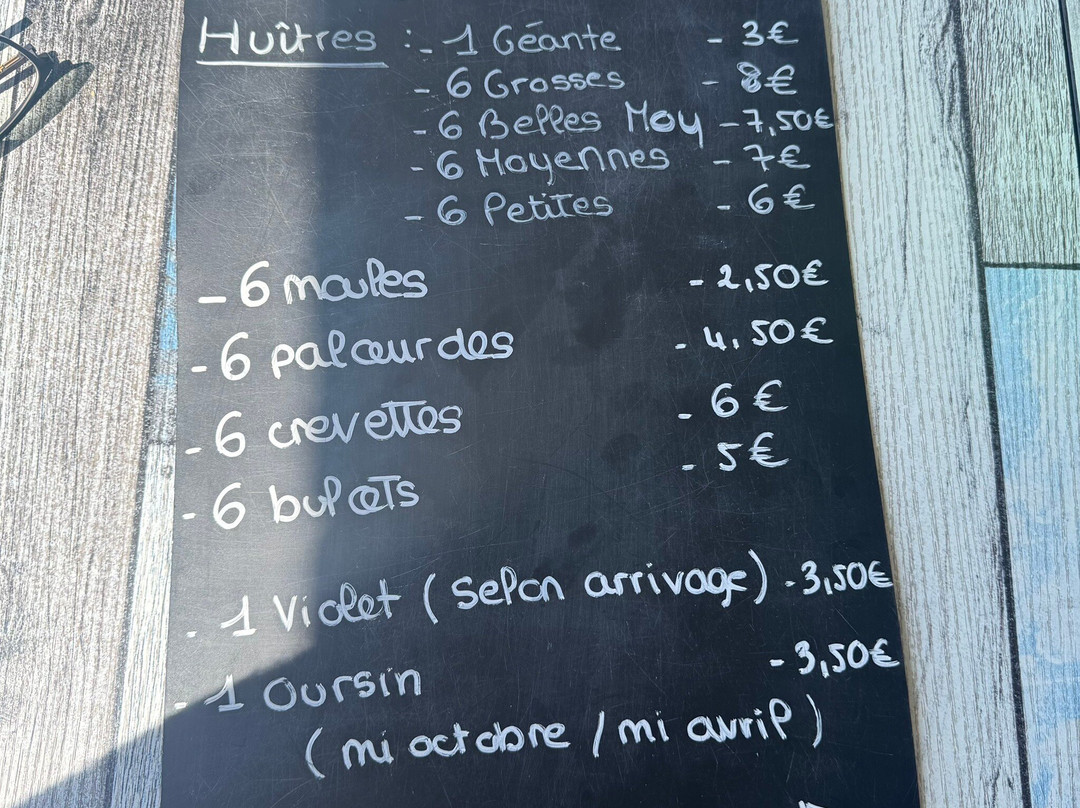 Huîtres :- 1 Géante - 3€
- 6 Grosses - 8€
- 6 Belles Moy - 7,50€
- 6 Moyennes - 7€
- 6 Petites - 6€
- 6 moules - 2,50€
- 6 palourdes - 4,50€
- 6 crevettes - 6€
- 6 bulots - 5€
- 1 Violet (selon arrivage) - 3,50€
- 1 Oursin - 3,50€
(mi octobre / mi avril)